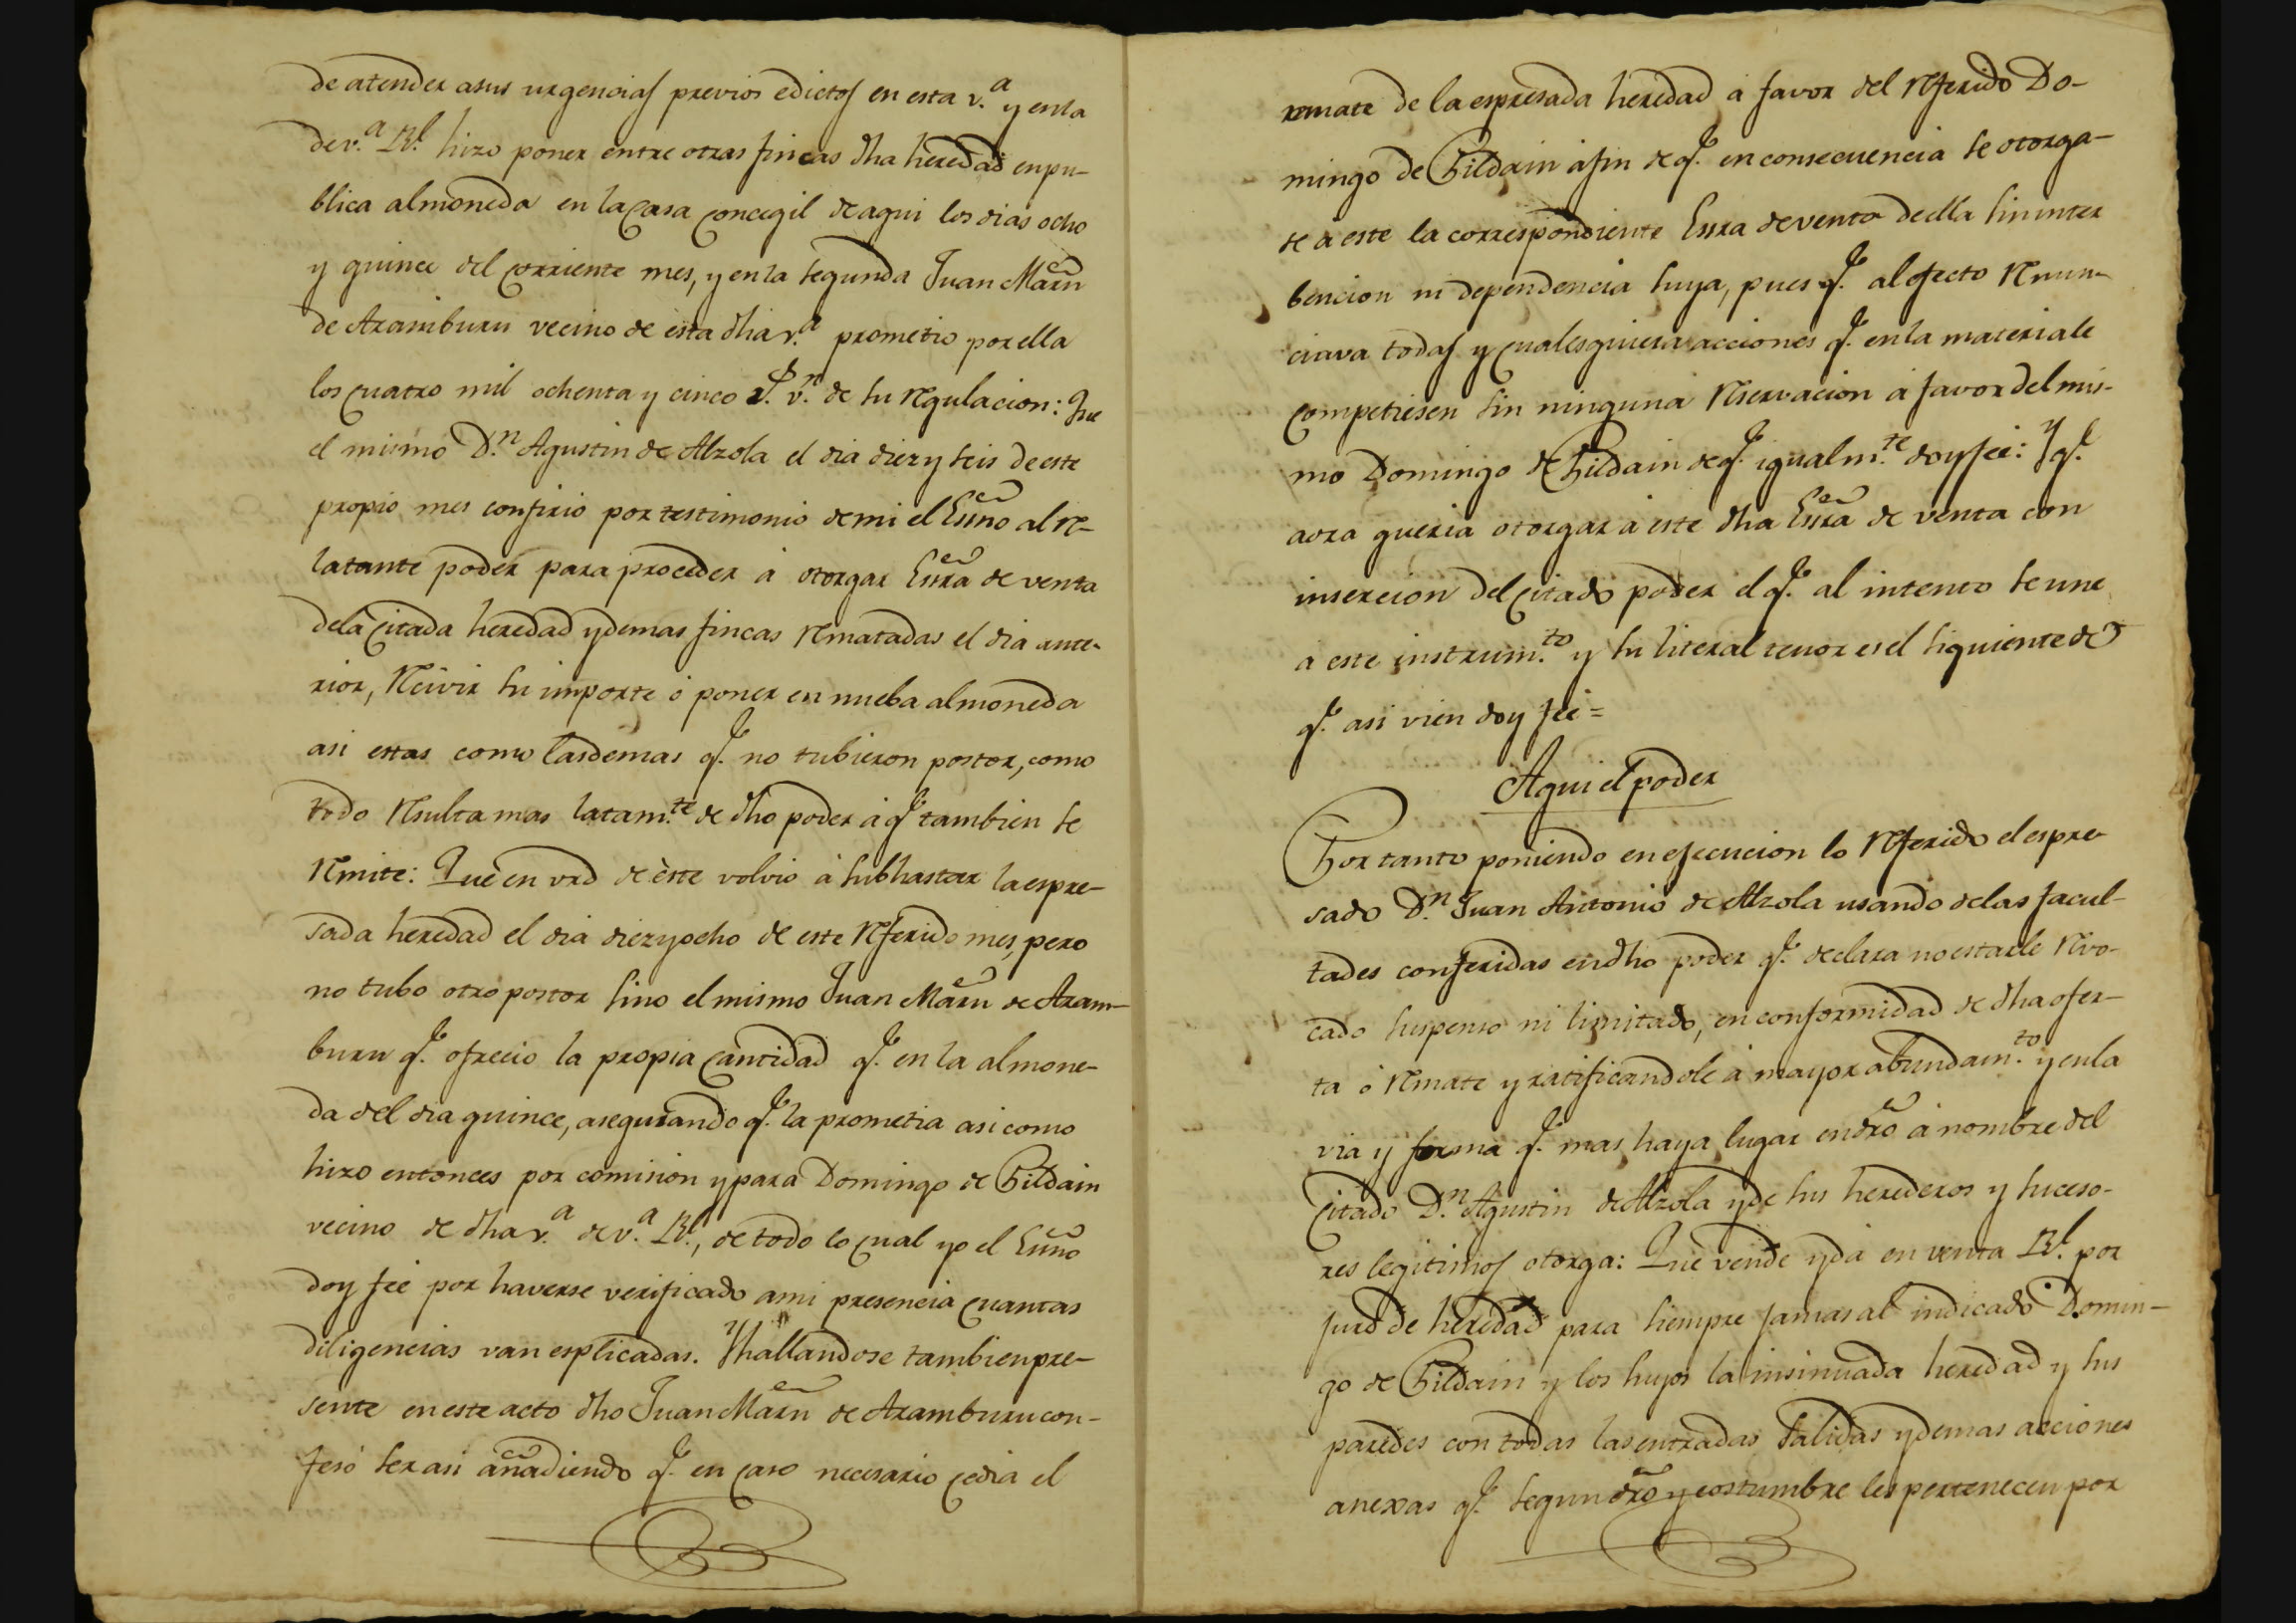 de atender asus urgencias previos edictos en esta v.ª y en la
de v.ª Rl. hizo poner entre otras fincas dha heredad en pu-
blica almoneda en la Casa Concegil de aqui los dias ocho
y quince del corriente mes, y en la segunda Juan Marn
de Aramburu vecino de esta dha v.ª prometio por ella
los cuatro mil ochenta y cinco rs. vn. de su regulacion: Que
el mismo Dn. Agustin de Alzola el dia diez y seis de este
propio mes confirio por testimonio de mi el Essno al re-
latante poder para proceder á otorgar Essra de venta
dela citada heredad y demas fincas rematadas el dia ante-
rior, recivir su importe ó poner en nueba almoneda
asi estas como las demas q.e no tubieron postor, como
todo resulta mas latam.te de dho poder á q.e tambien se
remite: Que en vrd de este volvio á subhastar la espre-
sada heredad el dia diez y ocho de este referido mes, pero
no tubo otro postor sino el mismo Juan Marn de Aram-
buru q.e ofrecio la propia cantidad q.e en la almone-
da del dia quince, asegurando q.e la prometia asi como
hizo entonces por comision y para Domingo de Gildain
vecino de dha v.ª de v.ª Rl., de todo lo cual yo el Essno
doy feé por haverse verificado ami presencia cuantas
diligencias van esplicadas. Y hallandose tambien pre-
sente en este acto dho Juan Marn de Aramburu con-
fesó ser asi añadiendo q.e en caso necesario cedia el
remate de la espresada heredad á favor del referido Do-
mingo de Gildain áfin de q.e en consecuencia se otorga-
se á este la correspondiente Essra de venta de ella sin inter
bencion ni dependencia suya, pues q.e al efecto renun-
ciava todas y cualesquiera acciones q.e en la materia le
competiesen sin ninguna reservacion á favor del mis-
mo Domingo de Gildain de q.e igualm.te doy feé: Y q.e
aora queria otorgar á este dha Essra de venta con
insercion del citado poder el q.e al intento se une
á este instrum.to y su literal tenor es el siguiente de
q.e asi vien doy feé =
Aqui el poder
Por tanto poniendo en ejecucion lo referido el espre
sado Dn. Juan Antonio de Alzola usando de las facul-
tades conferidas en dho poder q.e declara no estarle revo-
cado suspenso ni limitado, en conformidad de dha ofer-
ta ó remate y ratificandole á mayor abundam.to y en la
via y forma q.e mas haya lugar en dro á nombre del
Citado Dn. Agustin de Alzola y de sus herederos y suceso-
res legitimos otorga: Que vende y dá en venta Rl. por
juro de heredad para siempre jamas al indicado Domin-
go de Gildain y los suyos la insinuada heredad y sus
paredes con todas las entradas salidas y demas acciones
anexas q.e segun dro y costumbre les pertenecen por